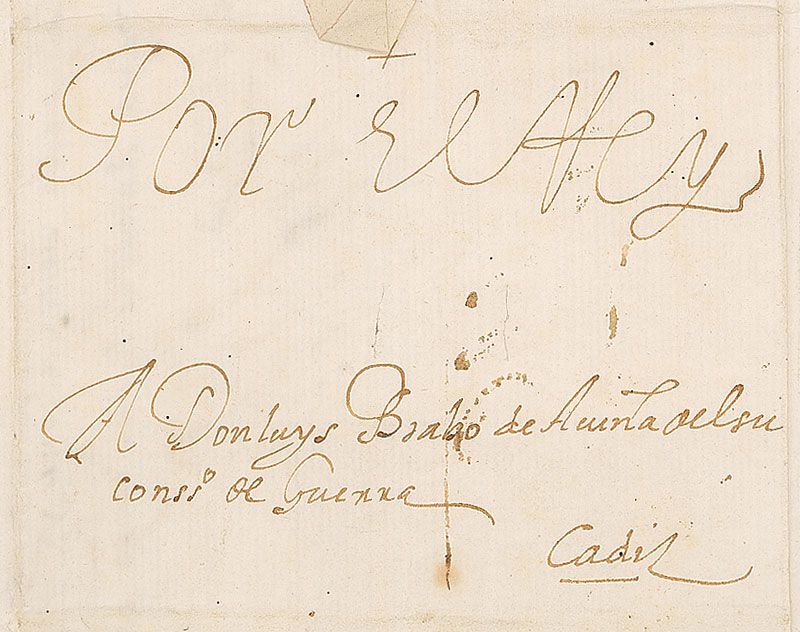 Por el Rey
A Don luys Brabo de Acuña del su
conss.º de Guerra
Cadiz